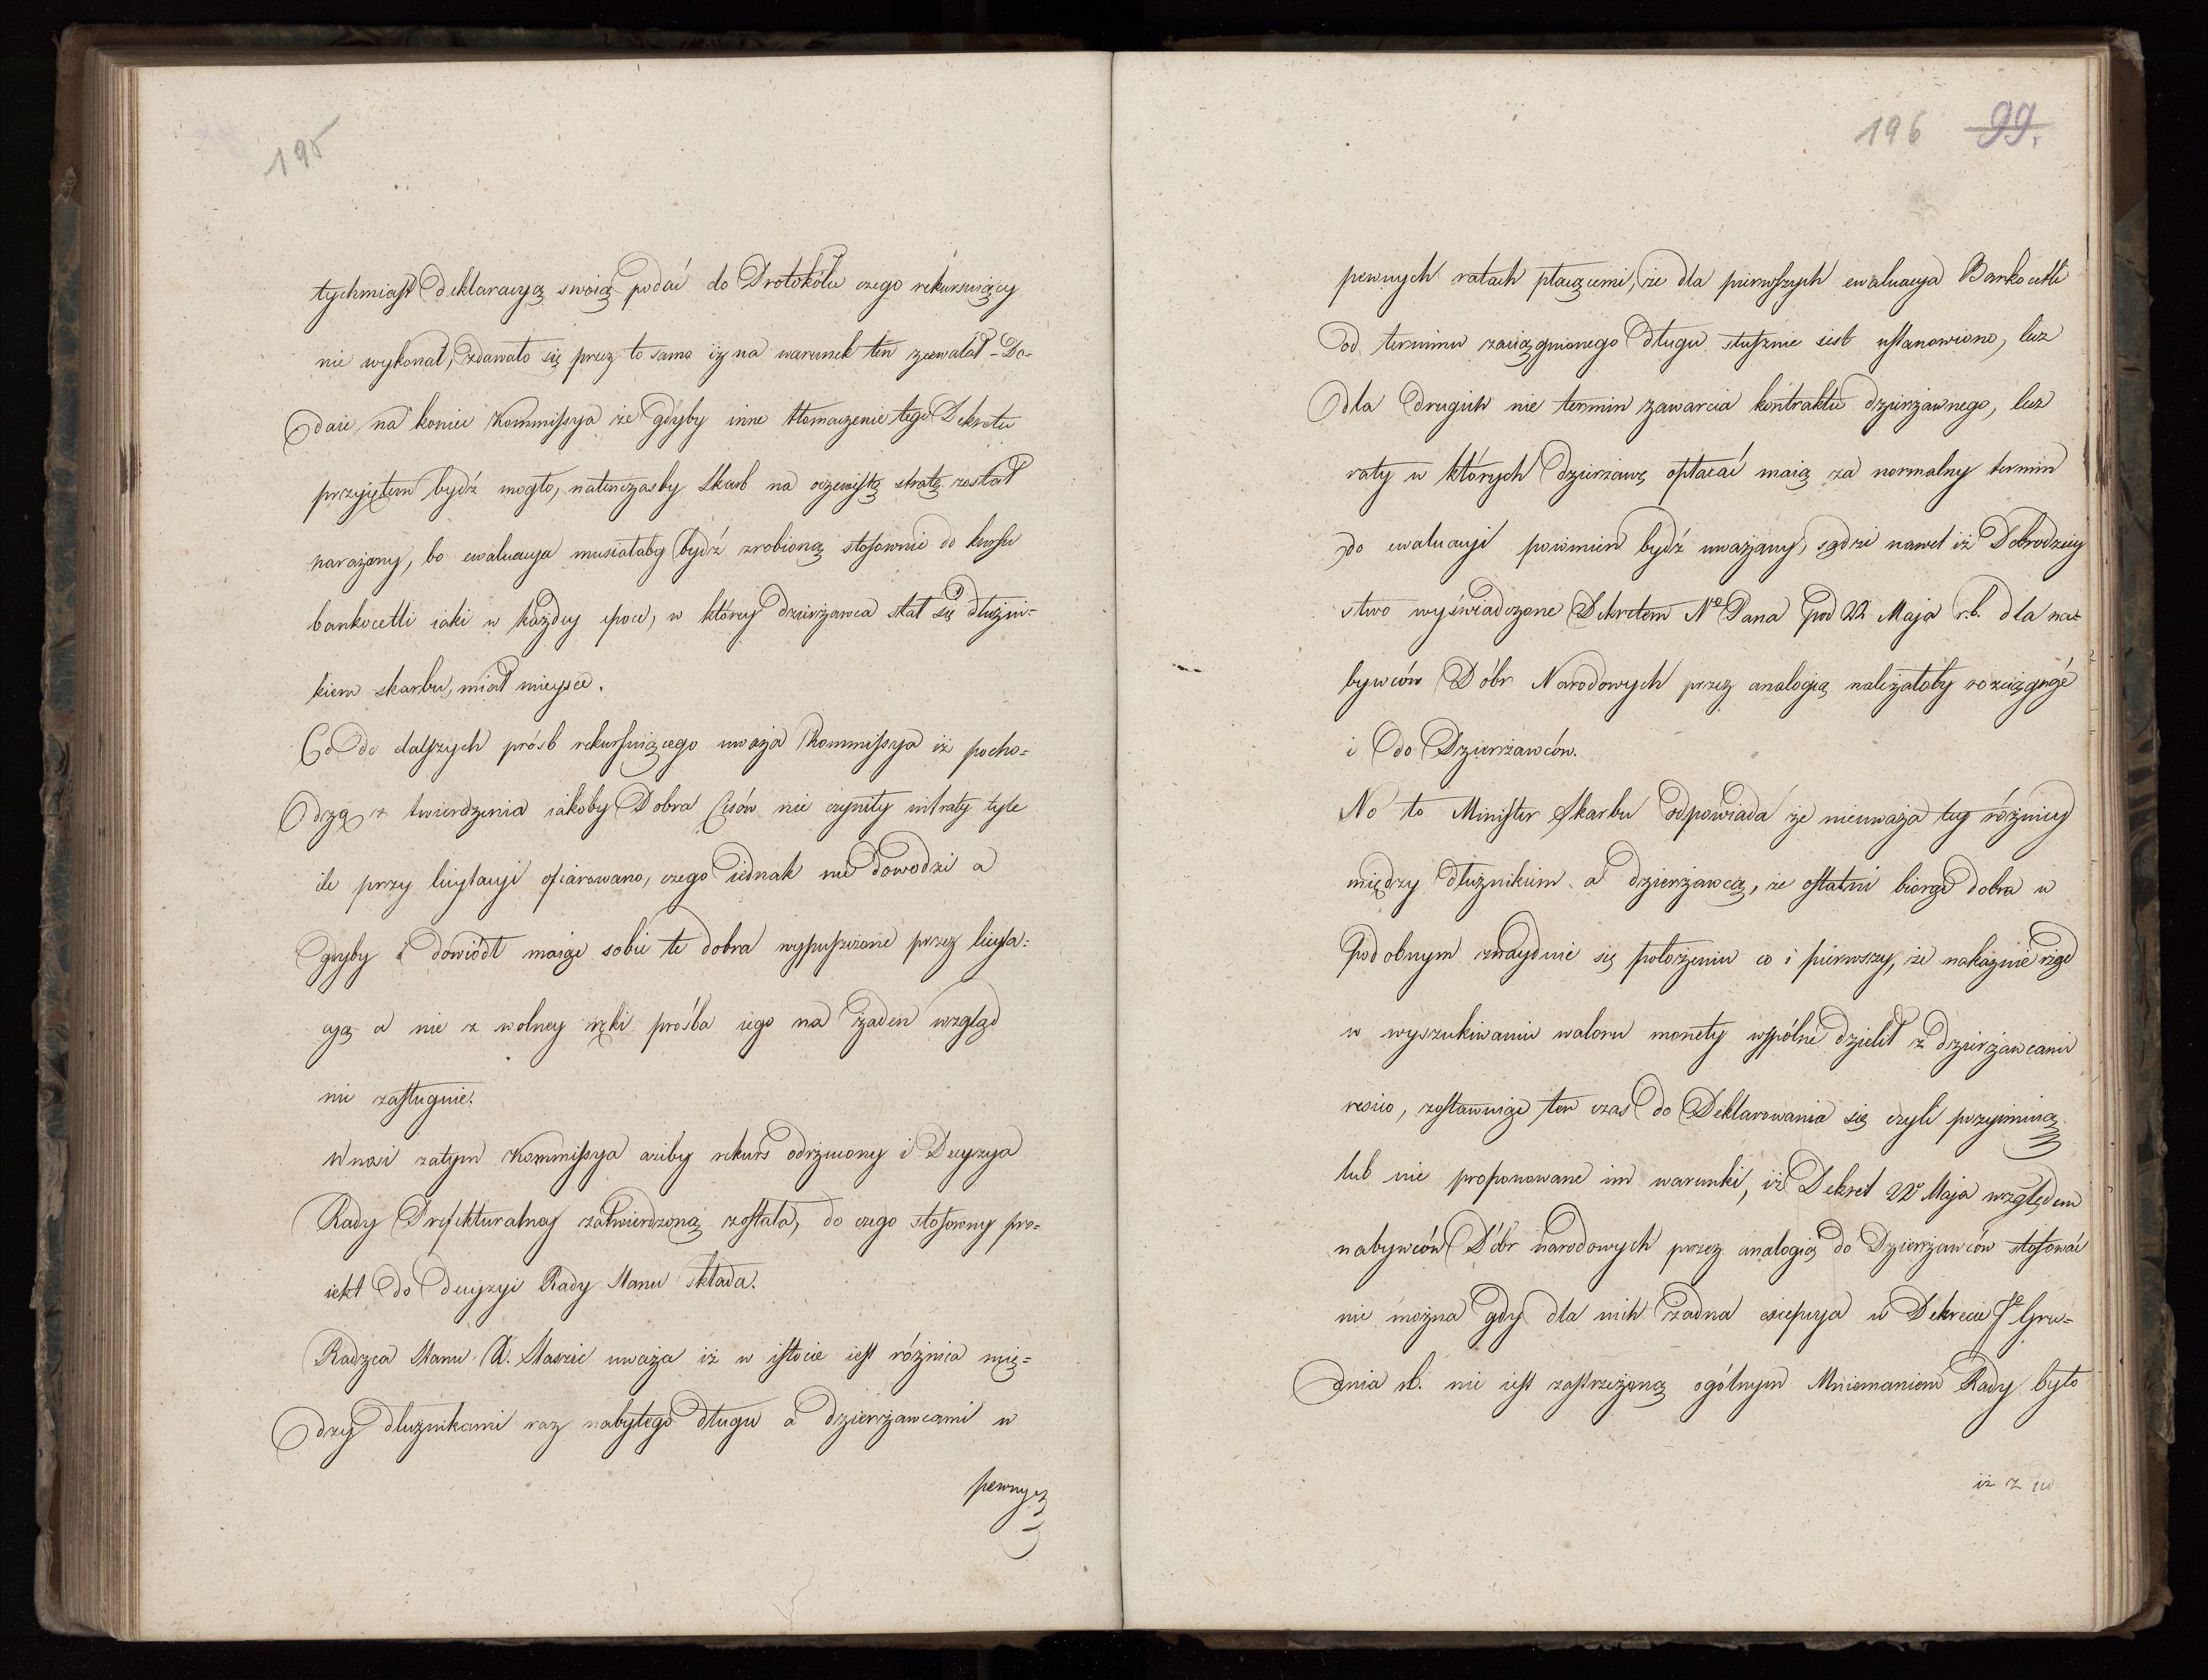 195
tychmiast deklaracyą swoią podać do Protokółu czego rekursuiący
nie wykonał, zdawało się przez to samo iż na warunek ten zezwalał - Do-
daie na koniec Kommissya że gdyby inne tłomaczenie tego Dekretu
przyiętem bydź mogło, natenczasby Skarb na oczewistą stratę został
narażony, bo ewaluacya musiałaby bydź zrobioną stosownie do kursu
bankocetli iaki w każdey epoce, w którey dzierżawca stał się dłużni-
kiem skarbu, miał mieysce.
Co do dalszych próśb rekursuiącego uważa Kommissya iż pocho-
dzą z twierdzenia iakoby Dobra Cisów nie czyniły intraty tyle
ile przy licytacyi ofiarowano, czego iednak nie dowodzi a
gdyby i dowiódł maiąc sobie te dobra wypuszczone przez licyta-
cyą a nie z wolney ręki prośba iego na żaden wzgląd
nie zasługuie.
Wnosi zatym Kommissya ażeby rekurs odrzucony i Decyzya
Rady Prefekturalney zatwierdzoną została, do czego stosowny pro-
iekt do decyzyi Rady Stanu składa.
Radzca Stanu X. Staszic uważa iż w istocie iest różnica mię-
dzy dłużnikami raz nabytego długu a dzierżawcami w
pewnych
196 99.
pewnych ratach płacącemi, że dla pierwszych ewaluacya Bankocetli
od terminu zaciągnionego długu słusznie iest ustanowiona, lecz
dla drugich nie termin zawarcia kontraktu dzierżawnego, lecz
raty w których dzierżawę opłacać maią za normalny termin
do ewaluacyi powinien bydź uważany, sądzi nawet iż Dobrodziey
stwo wyświadczone Dekretem No Pana pod 22 Maja r.b. dla na-
bywców Dóbr Narodowych przez analogią należałoby rozciągnąć
i do Dzierżawców.
Na to Minister Skarbu odpowiada że nieuważa tey różnicy
między dłużnikiem a dzierżawcą, że ostatni biorąc dobra w
podobnym znayduie się położeniu co i pierwszy, że nakoniec rząd
w wyszukiwaniu waloru monety wspólnie dzielił z dzierżawcami
resico, zostawuiąc ten czas do Deklarowania się czyli przyimuią
lub nie proponowane im warunki, iż Dekret 22o Maja względem
nabywców Dóbr narodowych przez analogią do Dzierżawców stosować
nie można gdy dla nich żadna excepcya w Dekrecie 1o Gru-
dnia rb. nie iest zastrzeżoną ogólnym Mniemaniem Rady było
iż z